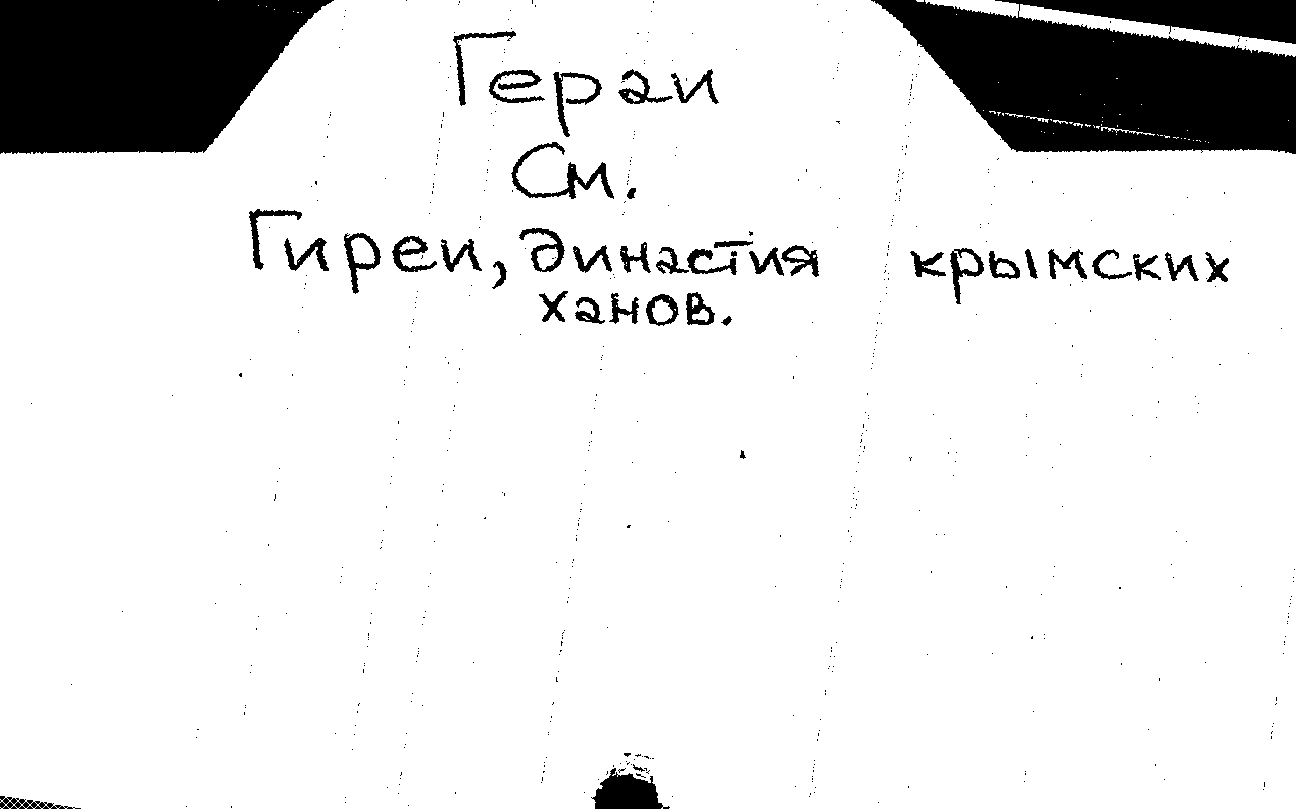 Гераи
См.
Гиреи, династия крымских
ханов.